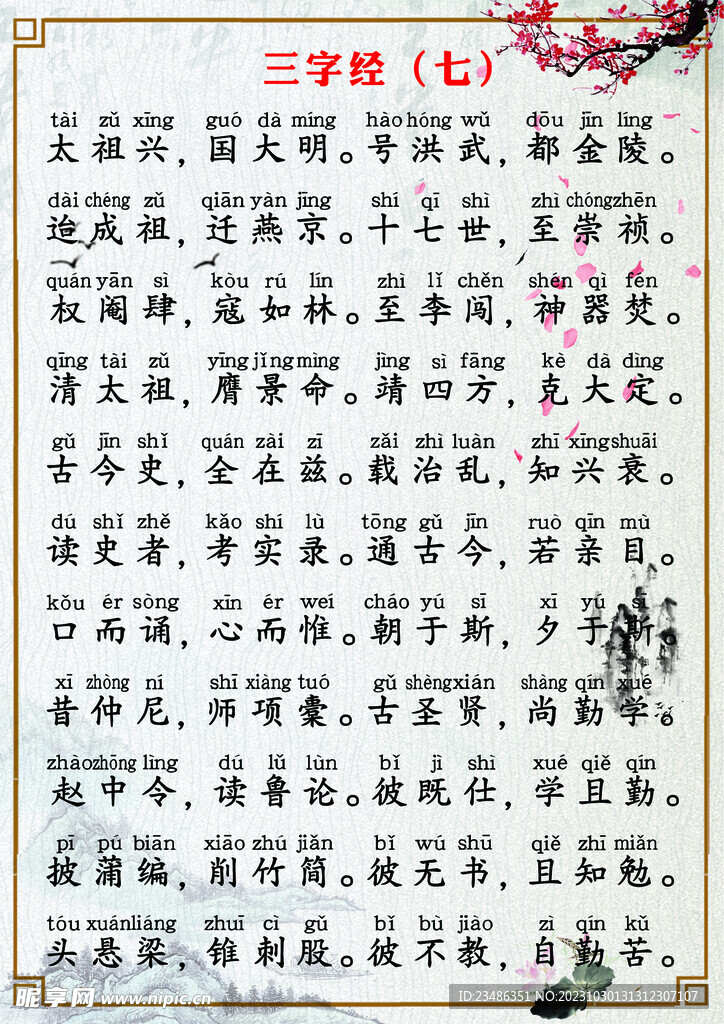 三字经（七）
tài zǔ xīng guó dà míng hào hóng wǔ dōu jīn líng
太祖兴，国大明。号洪武，都金陵。
dài chéng zǔ qiān yàn jīng shí qī shì zhì chóng zhēn
迨成祖，迁燕京。十七世，至崇祯。
quán yān sì kòu rú lín zhì lǐ chěn shén qì fén
权阉肆，寇如林。至李闯，神器焚。
qīng tài zǔ yīng jǐng mìng jìng sì fāng kè dà dìng
清太祖，膺景命。靖四方，克大定。
gǔ jīn shǐ quán zài zī zǎi zhì luàn zhī xīng shuāi
古今史，全在兹。载治乱，知兴衰。
dú shǐ zhě kǎo shí lù tōng gǔ jīn ruò qīn mù
读史者，考实录。通古今，若亲目。
kǒu ér sòng xīn ér weí cháo yú sī xī yú sī
口而诵，心而惟。朝于斯，夕于斯。
xī zhòng ní shī xiàng tuó gǔ shèng xián shàng qín xué
昔仲尼，师项橐。古圣贤，尚勤学。
zhào zhōng lìng dú lǔ lùn bǐ jì shì xué qiě qín
赵中令，读鲁论。彼既仕，学且勤。
pī pú biān xiāo zhú jiǎn bǐ wú shū qiě zhī miǎn
披蒲编，削竹简。彼无书，且知勉。
tóu xuán liáng zhuī cì gǔ bǐ bù jiào zì qín kǔ
头悬梁，锥刺股。彼不教，自勤苦。
昵享网 www.nipic.cn
ID:23486351 NO:20231030131312307107